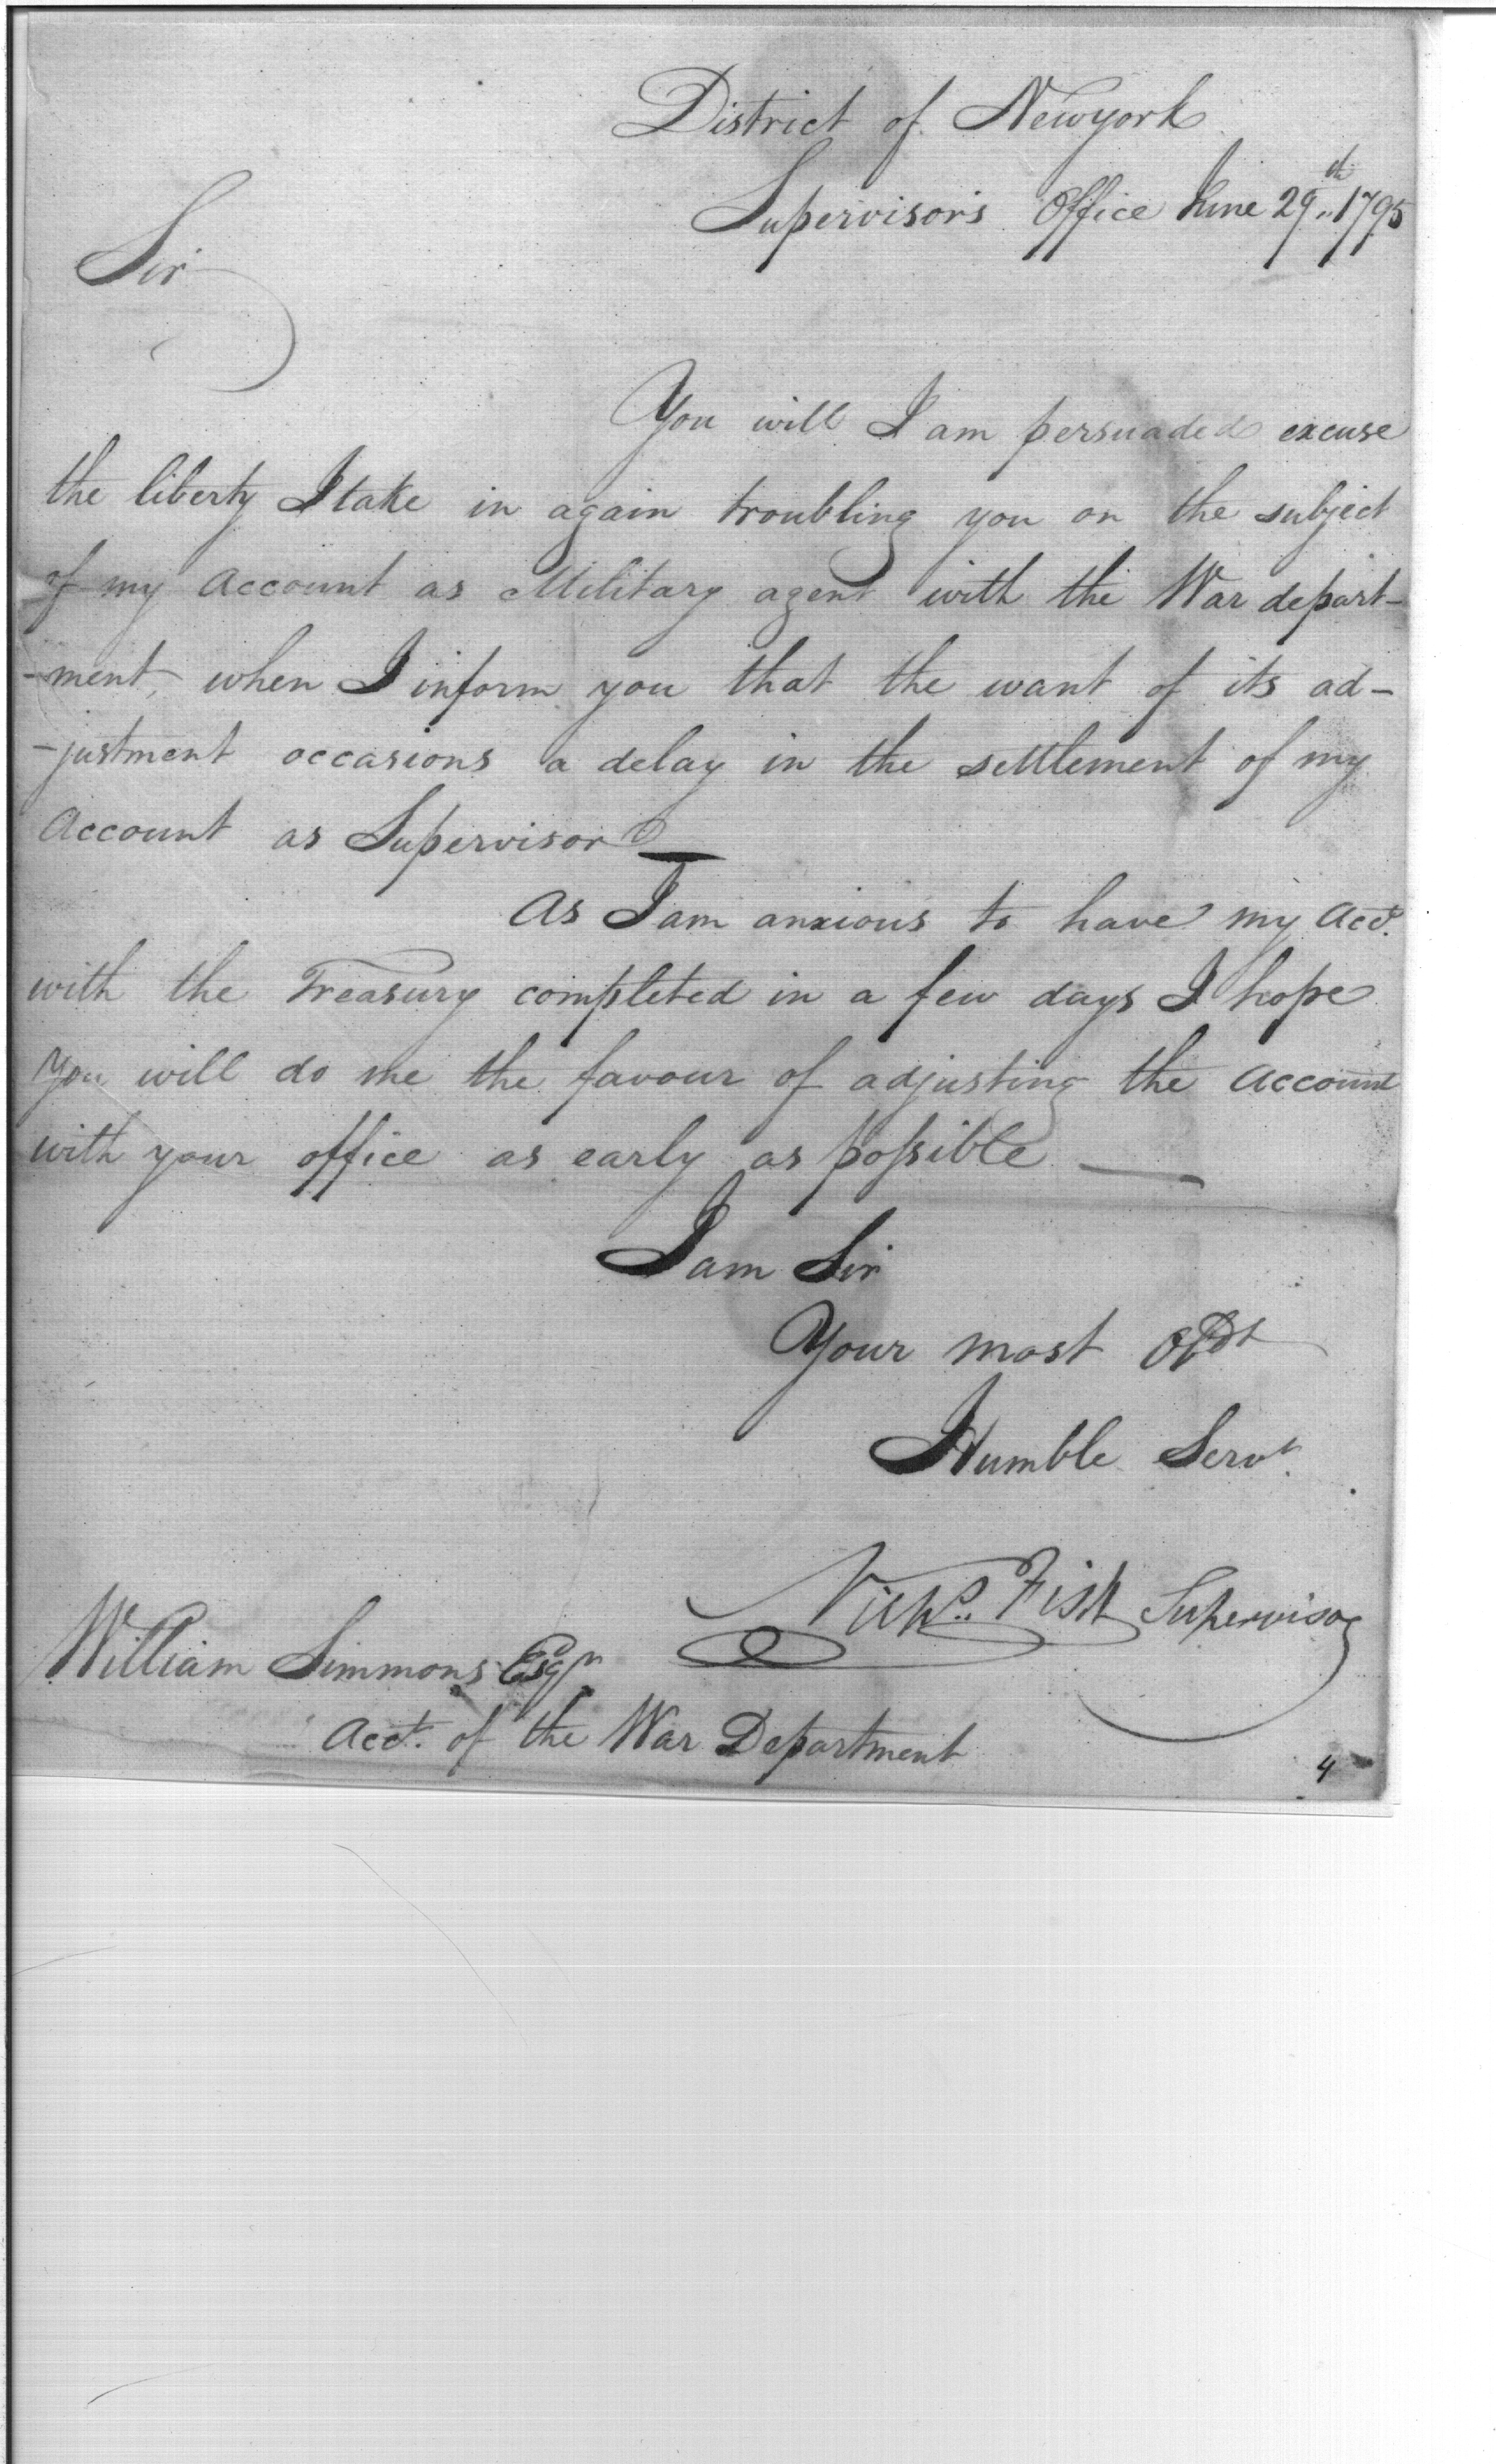 District of Newyork
Supervisors Office June 29th 1795
Sir
You will I am persuaded excuse
the liberty I take in again troubling you on the subject
of my Account as Military agent with the War depart-
-ment, when I inform you that the want of its ad-
-justment occasions a delay in the settlement of my
Account as Supervisor —
As I am anxious to have my Acct.
with the Treasury completed in a few days I hope
you will do me the favour of adjusting the Account
with your office as early as possible —
I am Sir
Your most Obdt
Humble Servt.
Nichs. Fish Supervisor
William Simmons Esqr
Acct. of the War Department
4